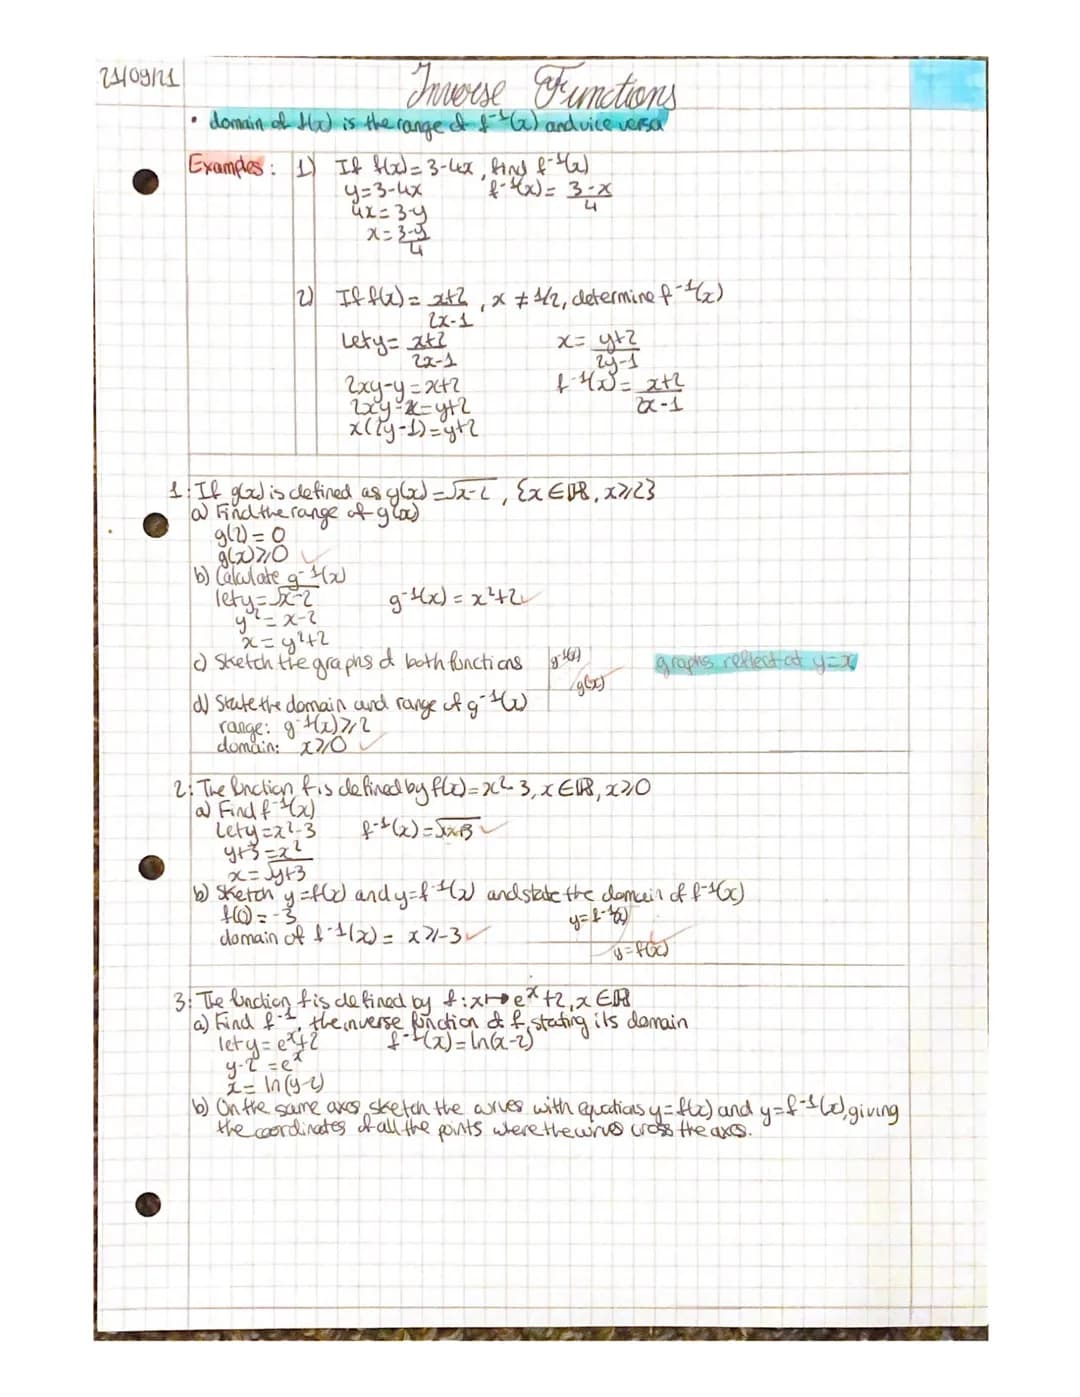 21/09/21
Inverse Functions
• domain of f(x) is the range of f⁻¹(x) and vice versa
Examples: 1) If f(x) = 3-4x, find f⁻¹(x)
y=3-4x f⁻¹(x) = 3-x/4
4x = 3-y
x = 3-y/4
2) If f(x) = x+2/2x-1, x ≠ 1/2, determine f⁻¹(x)
Let y = x+2/2x-1 x = y+2/2y-1
2xy-y = x+2 f⁻¹(x) = x+2/2x-1
2xy-x = y+2
x(2y-1) = y+2
1: If g(x) is defined as g(x) = √x-2, {x ∈ ℝ, x ≥ 2}
a) Find the range of g(x)
g(2) = 0
g(x) ≥ 0 ✓
b) Calculate g⁻¹(x)
let y = √x-2 g⁻¹(x) = x²+2 ✓
y² = x-2
x = y²+2
c) Sketch the graphs of both functions g⁻¹(x) graphs reflect at y=x
g(x)
d) State the domain and range of g⁻¹(x)
range: g⁻¹(x) ≥ 2
domain: x ≥ 0 ✓
2: The function f is defined by f(x) = x²-3, x ∈ ℝ, x ≥ 0
a) Find f⁻¹(x)
Let y = x²-3 f⁻¹(x) = √x+3 ✓
y+3 = x²
x = √y+3
b) Sketch y = f(x) and y = f⁻¹(x) and state the domain of f⁻¹(x)
f(0) = -3 y = f⁻¹(x)
domain of f⁻¹(x) = x ≥ -3 ✓
y = f(x)
3: The function f is defined by f: x ↦ eˣ+2, x ∈ ℝ
a) Find f⁻¹, the inverse function of f, stating its domain
let y = eˣ+2 f⁻¹(x) = ln(x-2)
y-2 = eˣ
x = ln(y-2)
b) On the same axes, sketch the curves with equations y = f(x) and y = f⁻¹(x), giving
the coordinates of all the points where the curves cross the axes.